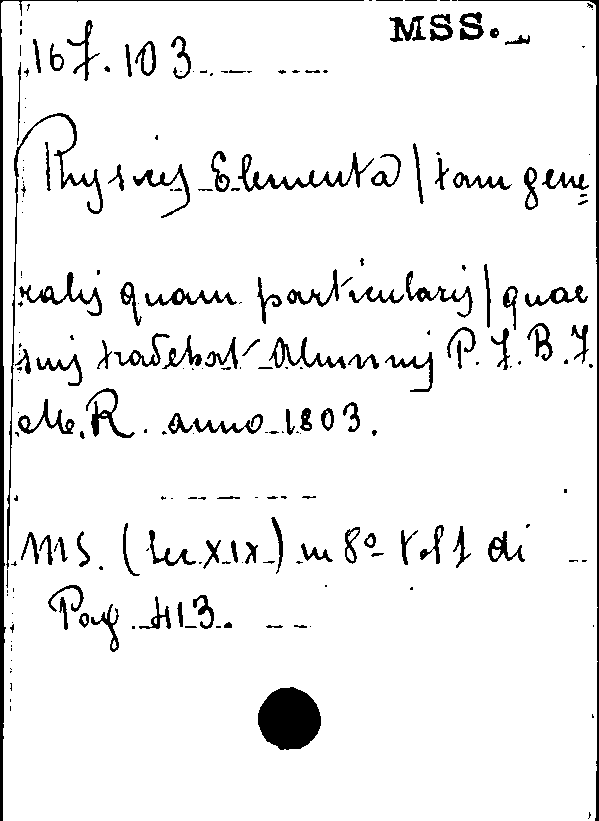 MSS.
167.103
Physices Elementa | tam gene=
ralis quam particularis | quae
suis tradebat Alumnis P. J. B. J.
M. R. anno 1803.
MS. (Sec XIX) in 8º di
Pag 413.